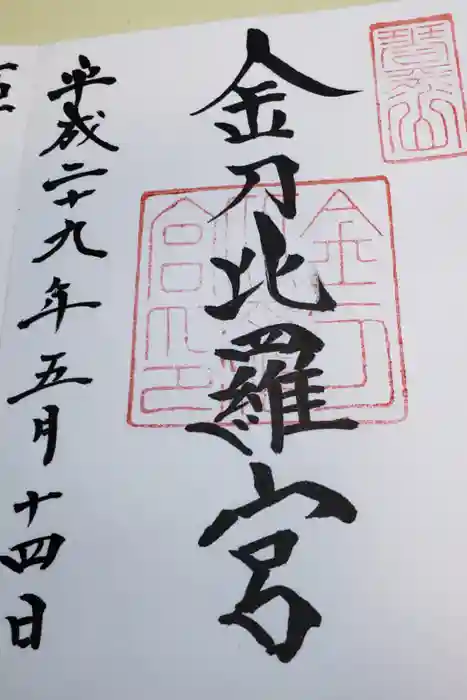 金刀比羅宮
平成二十九年五月十四日